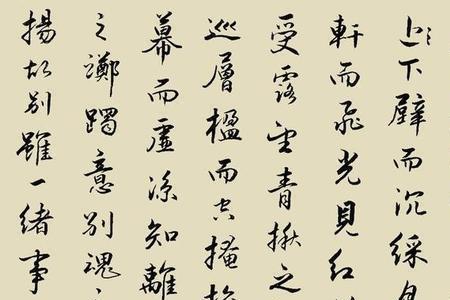 上下壁而沉綵月
軒而飛光見紅
受露望青楸之
巡層楹而空掩
幕而虛涼知離
之躑躅意別魂
揚故別雖一緒事